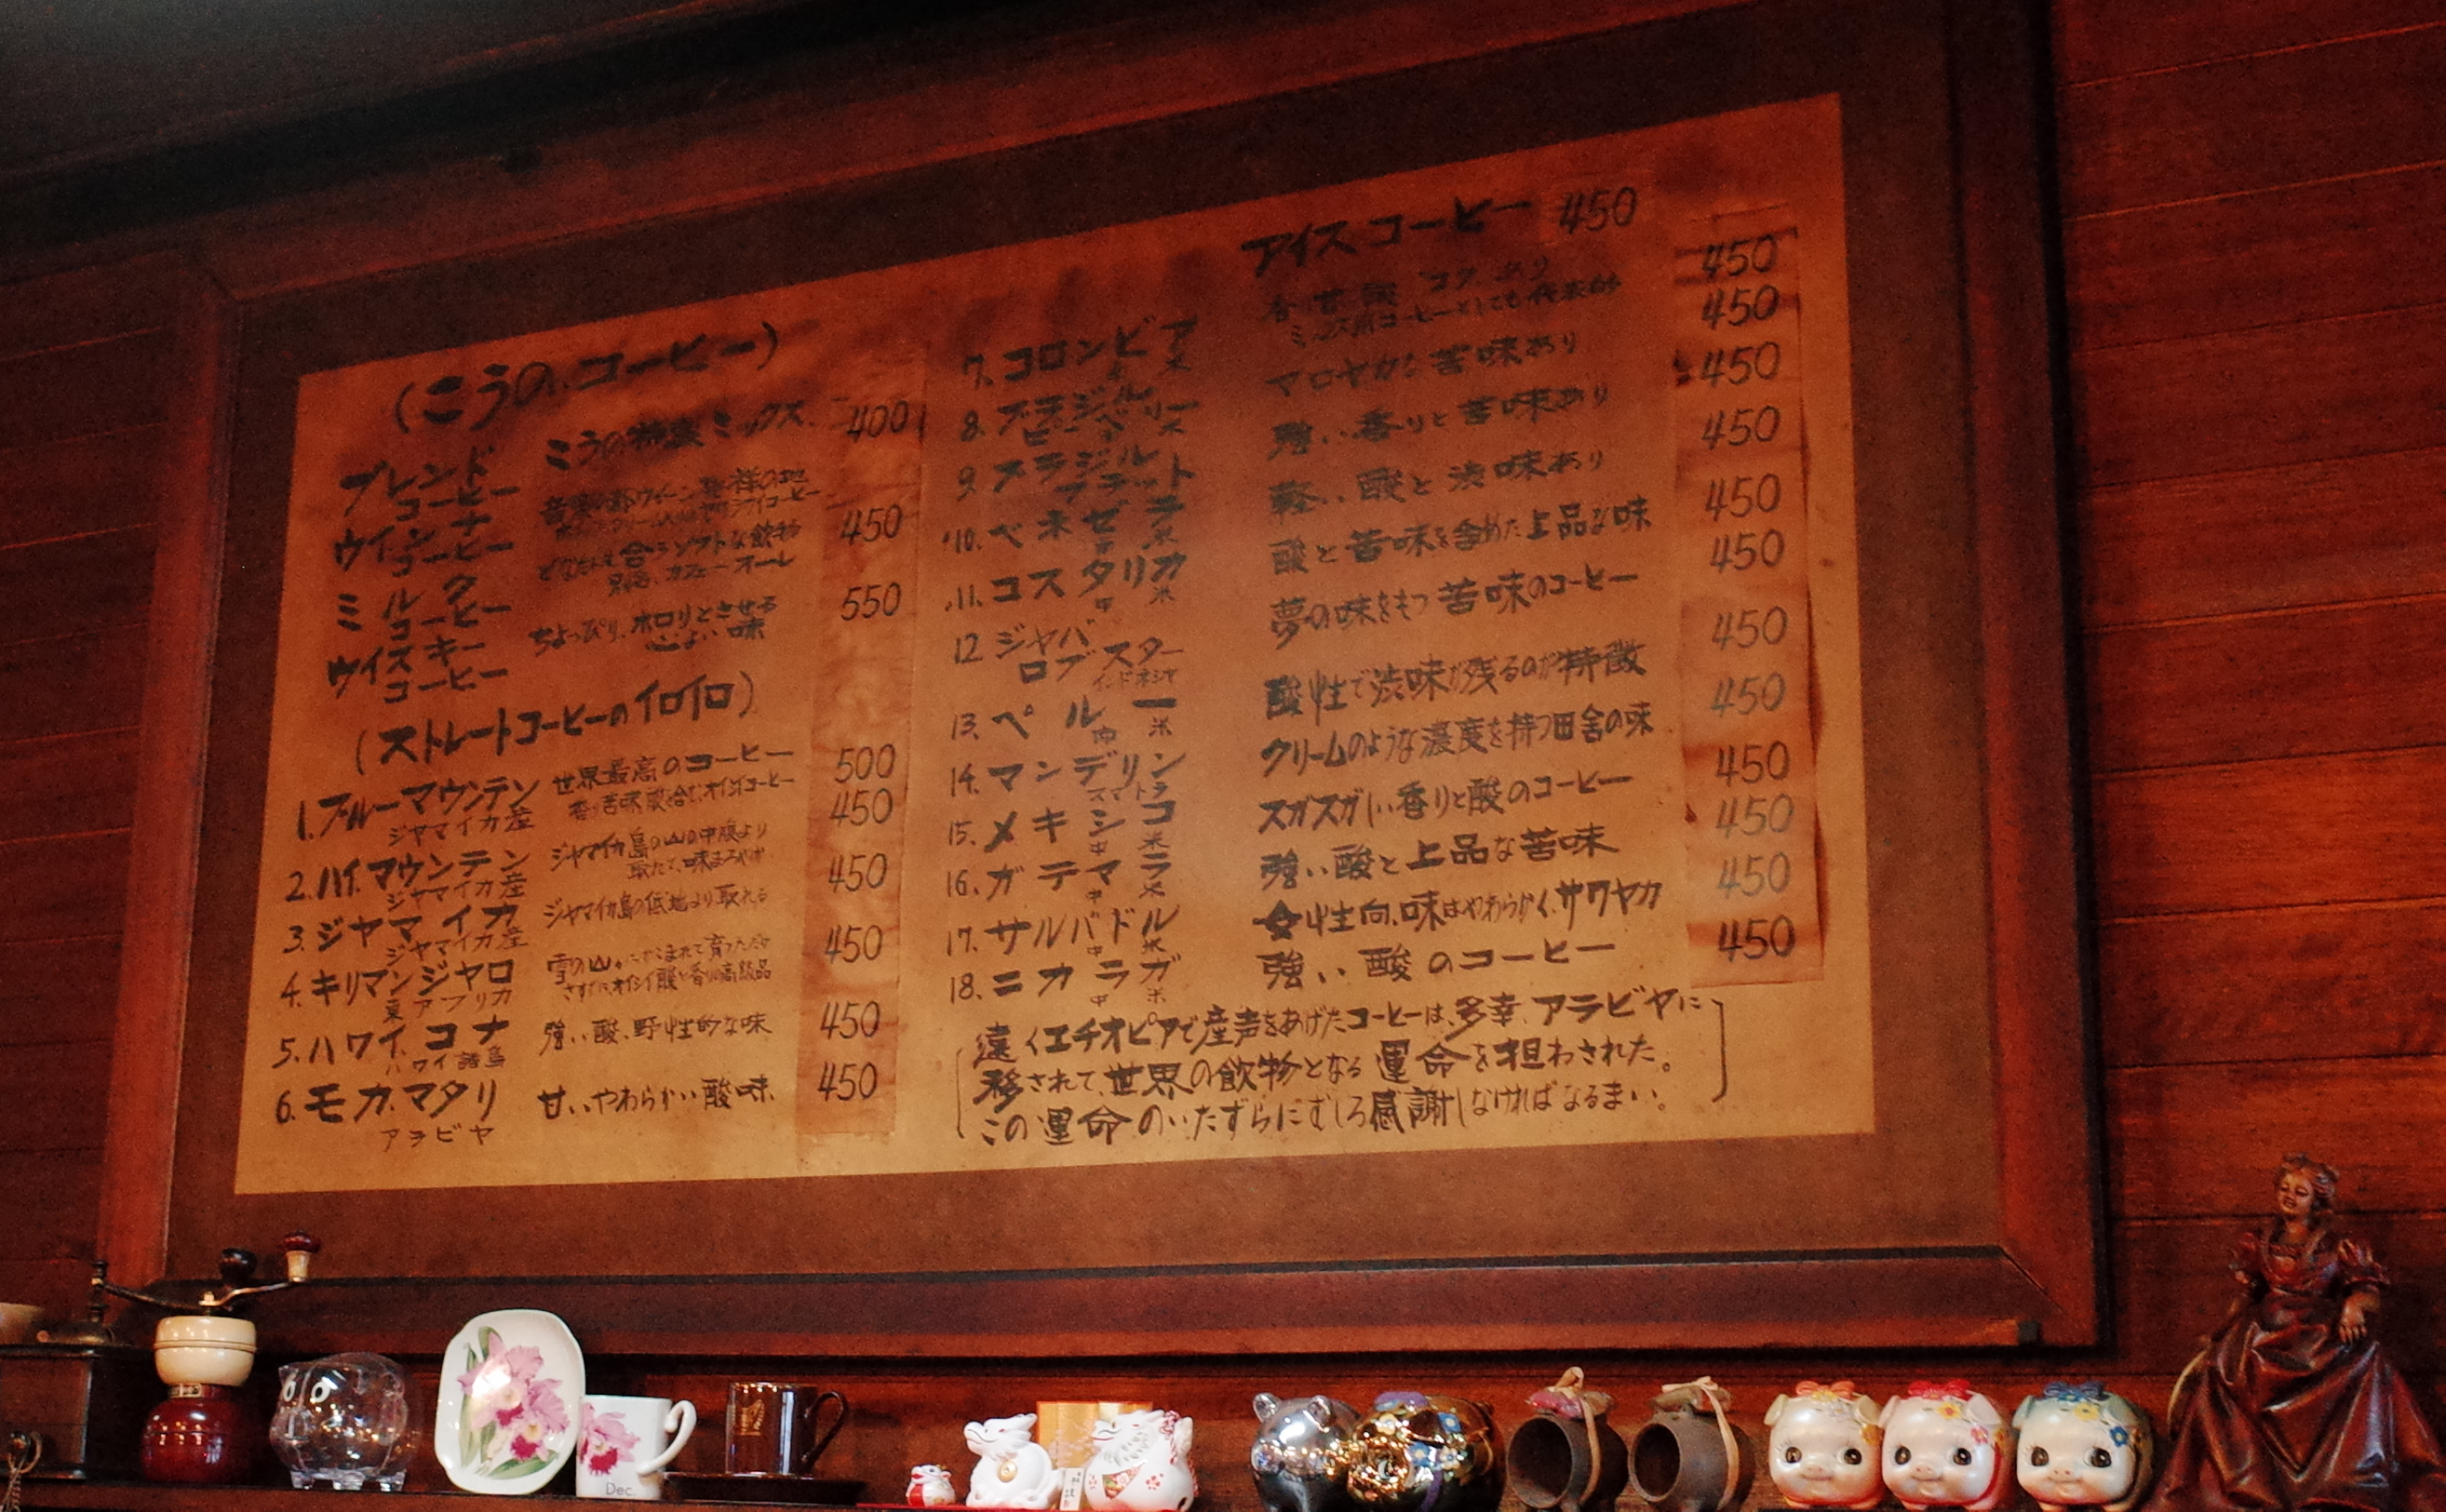 (こうの.コーヒー)
ブレンド
コーヒー
こうの特製ミックス.
400
ウインナ
コーヒー
音楽の都ウイーン発祥の地
ミルク
コーヒー
どなたにも合うソフトな飲物
別名、カフェーオーレ
450
ウイスキー
コーヒー
ちょっぴり.ホロリとさせる
心よい味
550
(ストレートコーヒーのイロイロ)
1.ブルーマウンテン
ジャマイカ産
世界最高のコーヒー
500
2.ハイ.マウンテン
ジャマイカ産
ジャマイカ島の山の中腹より
取れて、味まろやか
450
3.ジャマイカ
ジャマイカ産
ジャマイカ島の低地より取れる
450
4.キリマンジャロ
東アフリカ
450
5.ハワイ.コナ
ハワイ諸島
強い酸、野性的な味
450
6.モカ.マタリ
アラビヤ
甘い、やわらかい酸味.
450
アイスコーヒー 450
7.コロンビア
ミックス用コーヒーとしても代表的
450
8.ブラジル
マロヤカな苦味あり
450
9.ブラジル
強い香りと苦味あり
450
10.ベネゼラ
軽い酸と渋味あり
450
11.コスタリカ
中 米
酸と苦味を含めた上品な味
450
12 ジャバ
ロブスター
インドネシヤ
夢の味をもつ苦味のコーヒー
450
13.ペルー
酸性で渋味が残るのが特徴
450
14.マンデリン
スマトラ
クリームのような濃度を持つ田舎の味
450
15.メキシコ
中 米
スガスガしい香りと酸のコーヒー
450
16.ガテマラ
中 米
強い酸と上品な苦味
450
17.サルバドル
中 米
性向.味はやわらかく.サワヤカ
450
18.ニカラガ
中 米
強い酸のコーヒー
450
遠くエチオピアで産声をあげたコーヒーは、多幸、アラビヤに
移されて、世界の飲物となる運命を担わされた。
この運命のいたずらにむしろ感謝しなければなるまい。
Dec.